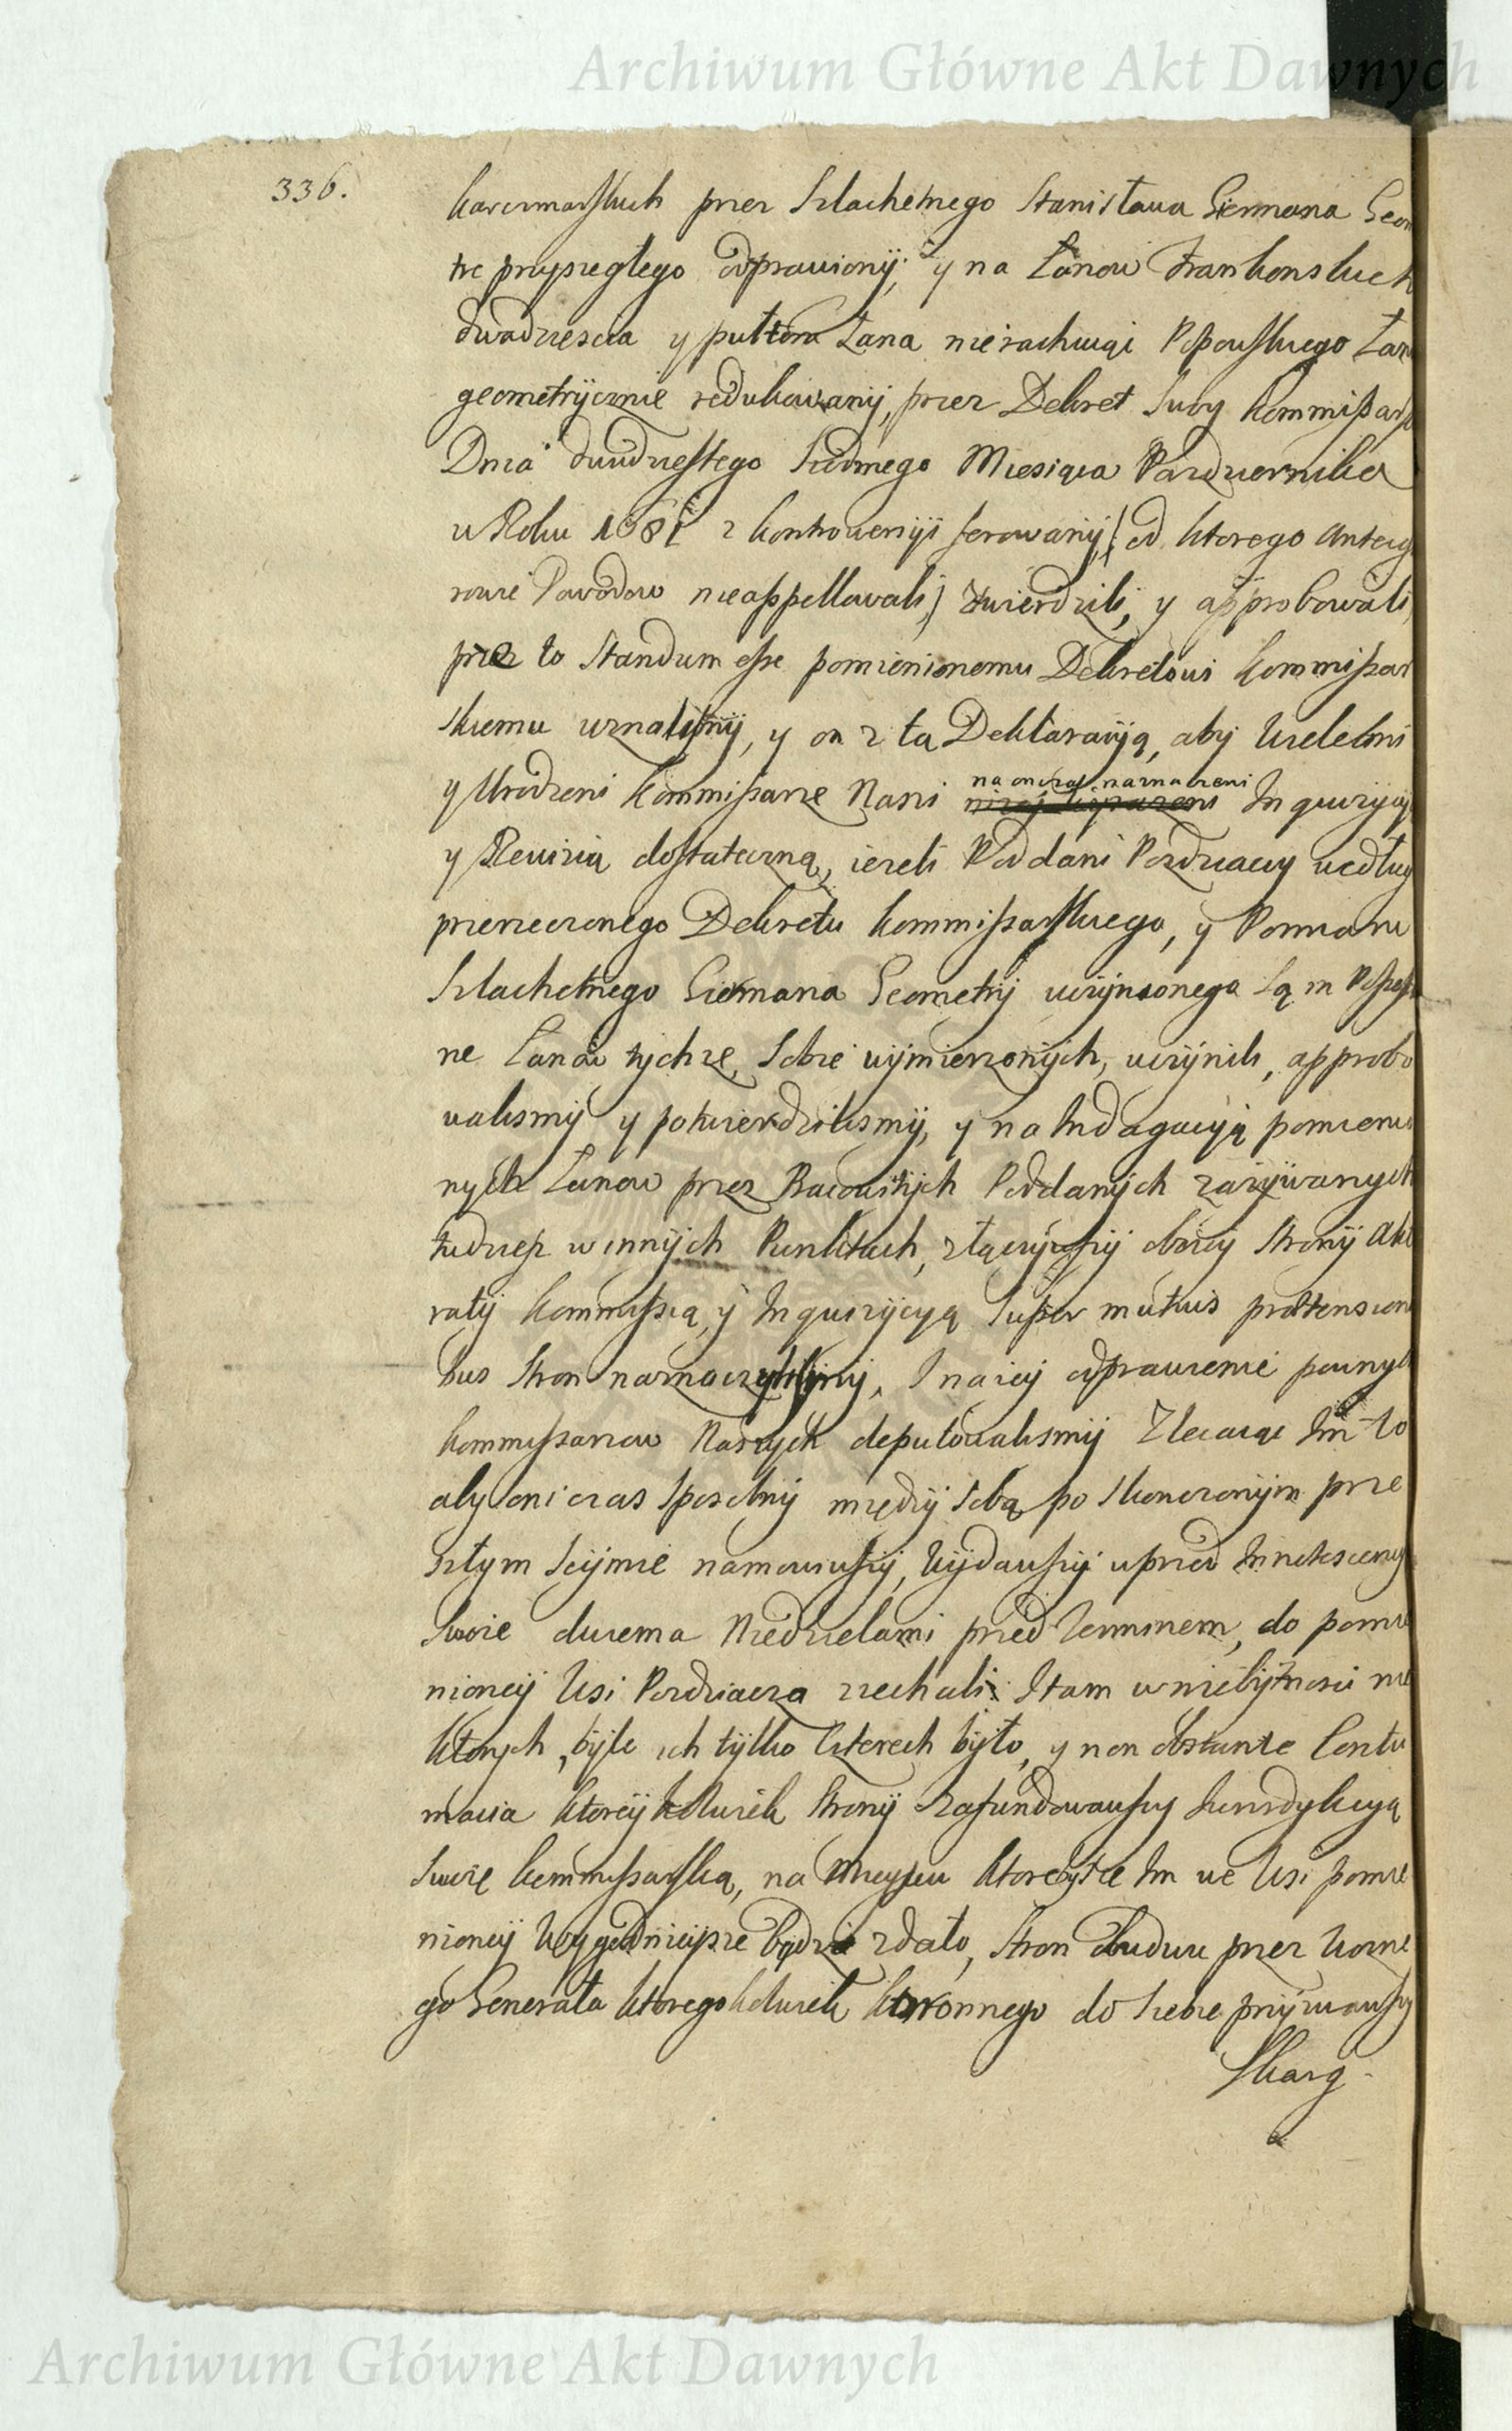 Archiwum Główne Akt Dawnych
336.
karczmarskich przez Szlachetnego Stanisława Giermana Geom
trę przysięgłego odprawionÿ, y na Łanow Frankonskich
dwadziescia y pułtora Łana nierachuiąc Popowskiego Łan
geometrÿcznie redukowanÿ, przez Dekret Suby Kommissars
Dnia dwudziestego Siodmego Miesiąca Pazdziernika
w Roku 1681 z kontrowersÿi ferowanÿ, (od ktorego Anteceß
rowie Powodow nieappellowali,) ztwierdzili, y approbowali,
przez to Standum esse pomienionemu Dekretowi Kommissar
skiemu uznalismÿ, y on z tą Deklaracÿą, aby Wielebni
y Urodzeni Kommissarze Nasi na on czas naznaczeni Inquizÿcÿą
y Rewizią dostateczną, iezeli Poddani Pozdziaccy według
przerzeczonego Dekretu Kommissarskiego, y Pomiaru
Szlachetnego Giermana Geometrÿ uczÿnionego Są in Possessio
ne Łanow tÿchze Sobie wÿmierzonÿch, uczÿnili, approbo
walismÿ y potwierdzilismÿ, y na Indagacÿą pomienio
nych Łanow przez Poddanÿch zazÿwanych
tudziesz w innÿch Punktach, złączÿwszÿ oboiey Stronÿ Akto
ratÿ Kommissią, ÿ Inquizÿcyą Super mutuis prætensioni
bus Stron naznaczÿlismÿ, I na ieÿ odprawienie pewnych
Kommissarzow Naszÿch deputowalismÿ Zlecaiąc Im to
aby oni czas Sposobnÿ międzÿ Sobą po Skonczonÿm prze
szłym Seÿmie namowiwszÿ, Wÿdawszÿ wprzod Innotescencÿe
Swoie dwiema Niedzielami przed Terminem, do pomie
nioneÿ Wsi Pozdziacza ziechali: I tam w niebÿtnosci nie
ktorych, bÿle ich tÿlko Czterech bÿło, y non obstante Contu
macia ktoreÿkolwiek Stronÿ Zafundowawszÿ Jurisdykcyą
Swoię Kommissarską, na mieyscu ktore bÿ sie Im we Wsi pomie
nioneÿ Wygodnieÿsze będzie zdało, Stron obudwu przez Wozne
go Generała ktoregokolwiek Koronnego do Siebie przÿzwawszy
Skarg-
Archiwum Główne Akt Dawnych